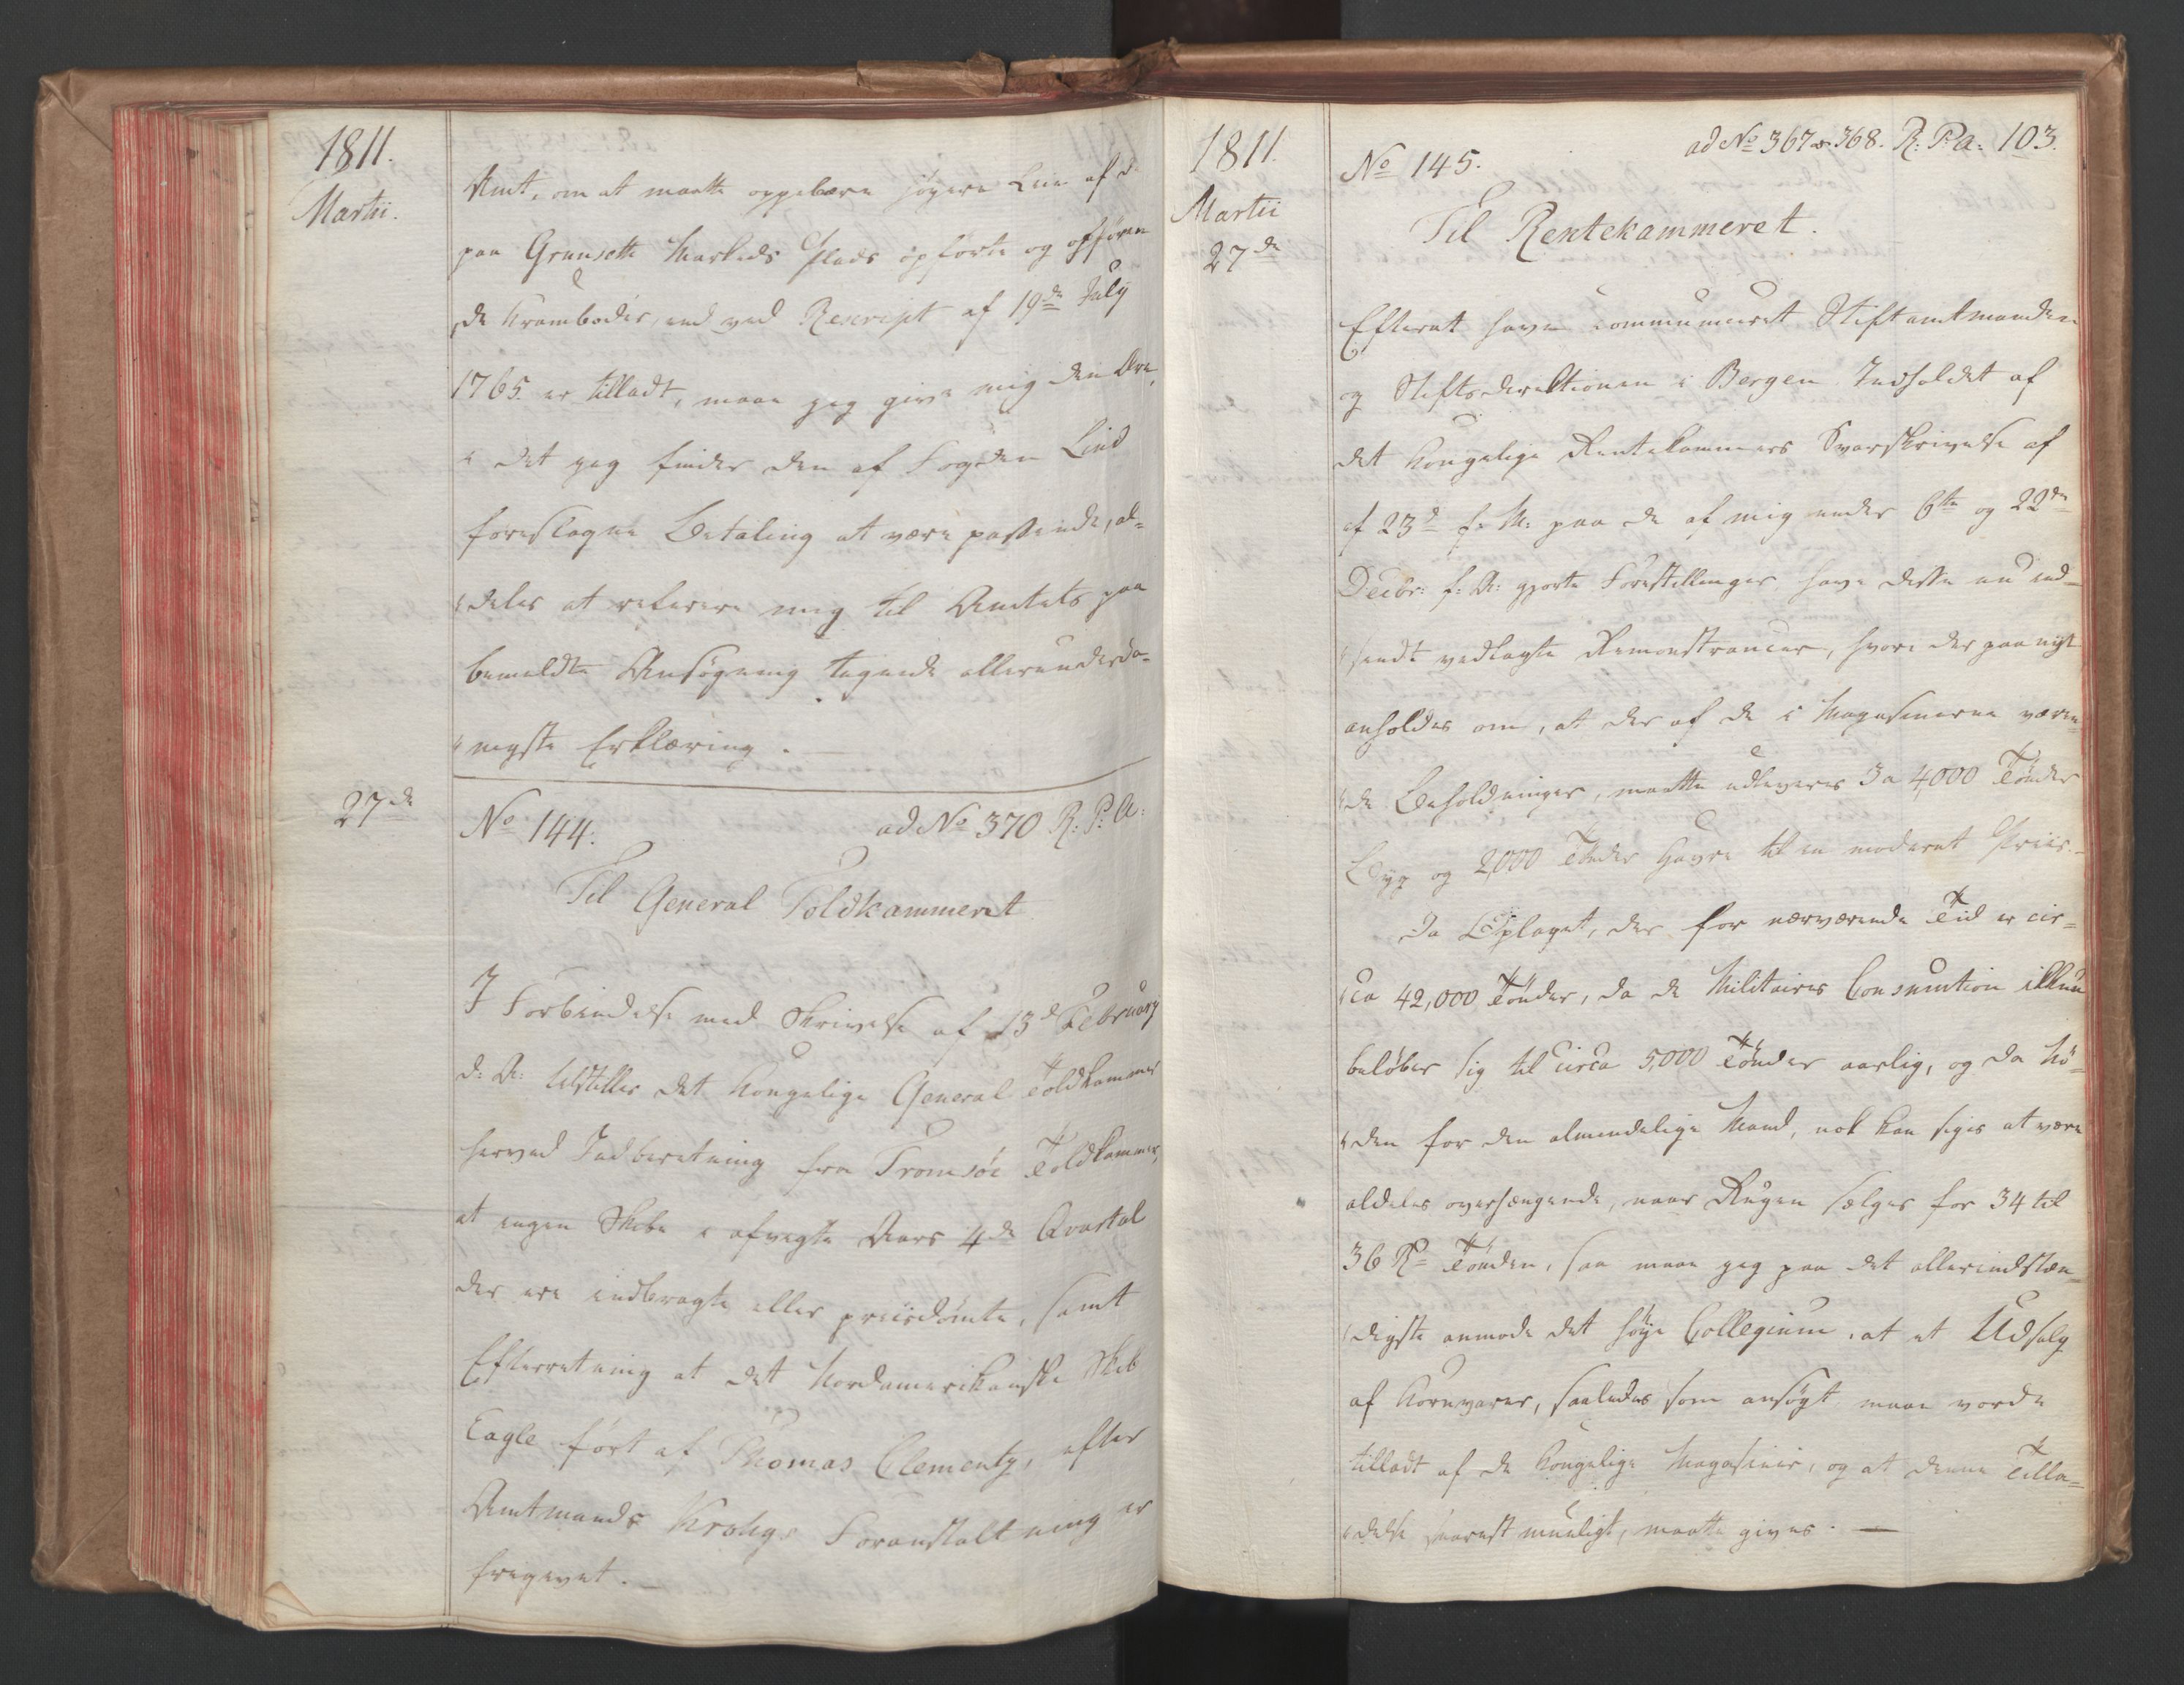 1811.
Martii.
Amt, om at maatte oppebære høyere Leie af d
paa Grunsett Markeds Plads opførte og opføren
de Kramboder, end ved Rescript af 19de July
1765 er tilladt, maae jeg give mig den Ære,
i det jeg finder den af Fogden Lind
foreslagne Betaling at være passende, al-
deles at referere mig til Amtets paa
bemeldte Ansøgning tegnede allerunderda-
nigste Erklæring. —
27de
No 144.
ad No 370 R: P: A:
Til General Toldkammeret
I Forbindelse med Skrivelse af 13de February
d: A: tilstilles det Kongelige General Toldkammer
herved Indberetning fra Tromsøe Toldkammer,
at ingen Skibe i afvigte Aars 4de Qvartal
der ere indbragte eller priisdømte, samt
Efterretning at det Nordamerikanske Skib
Eagle ført af Thomas Clementz, efter
Amtmands Krohgs Foranstaltning er
frigivet. —
1811.
Martii
27de
No 145.
ad No 367 & 368. R: P: A: 103.
Til Rentekammeret.
Efterat have communiceret Stiftamtmanden
og Stiftsdirektionen i Bergen Indholdet af
det Kongelige Rentekammers Svarskrivelse af
af 23d f: M: paa de af mig under 6te og 22de
Decbr: f: A: gjorte Forestillinger have disse nu ind-
sendt vedlagte Remonstrancer, hvori der paa nyt
anholdes om, at der af de i Magasinerne væren
de Beholdninger, maatte udleveres 3 a 4,000 Tønder
Byg og 2,000 Tønder Havre til en moderat Priis. —
Da Oplaget, der for nærværende Tid er cir-
ca 42,000 Tønder, da de Militaires Consumtion ikkun
beløber sig til circa 5,000 Tønder aarlig, og da Nø-
den for den almindelige Mand, nok kan siges at være
aldeles overhængende, naar Rugen sælges for 34 til
36 Rd Tønden, saa maae jeg paa det allerindstæn-
digste anmode det høye Collegium, at et Udsalg
af Kornvarer, saaledes som ansøgt maae vorde
tilladt af de Kongelige Magasiner, og at denne Tilla-
delse snarest mueligt, maatte gives. —